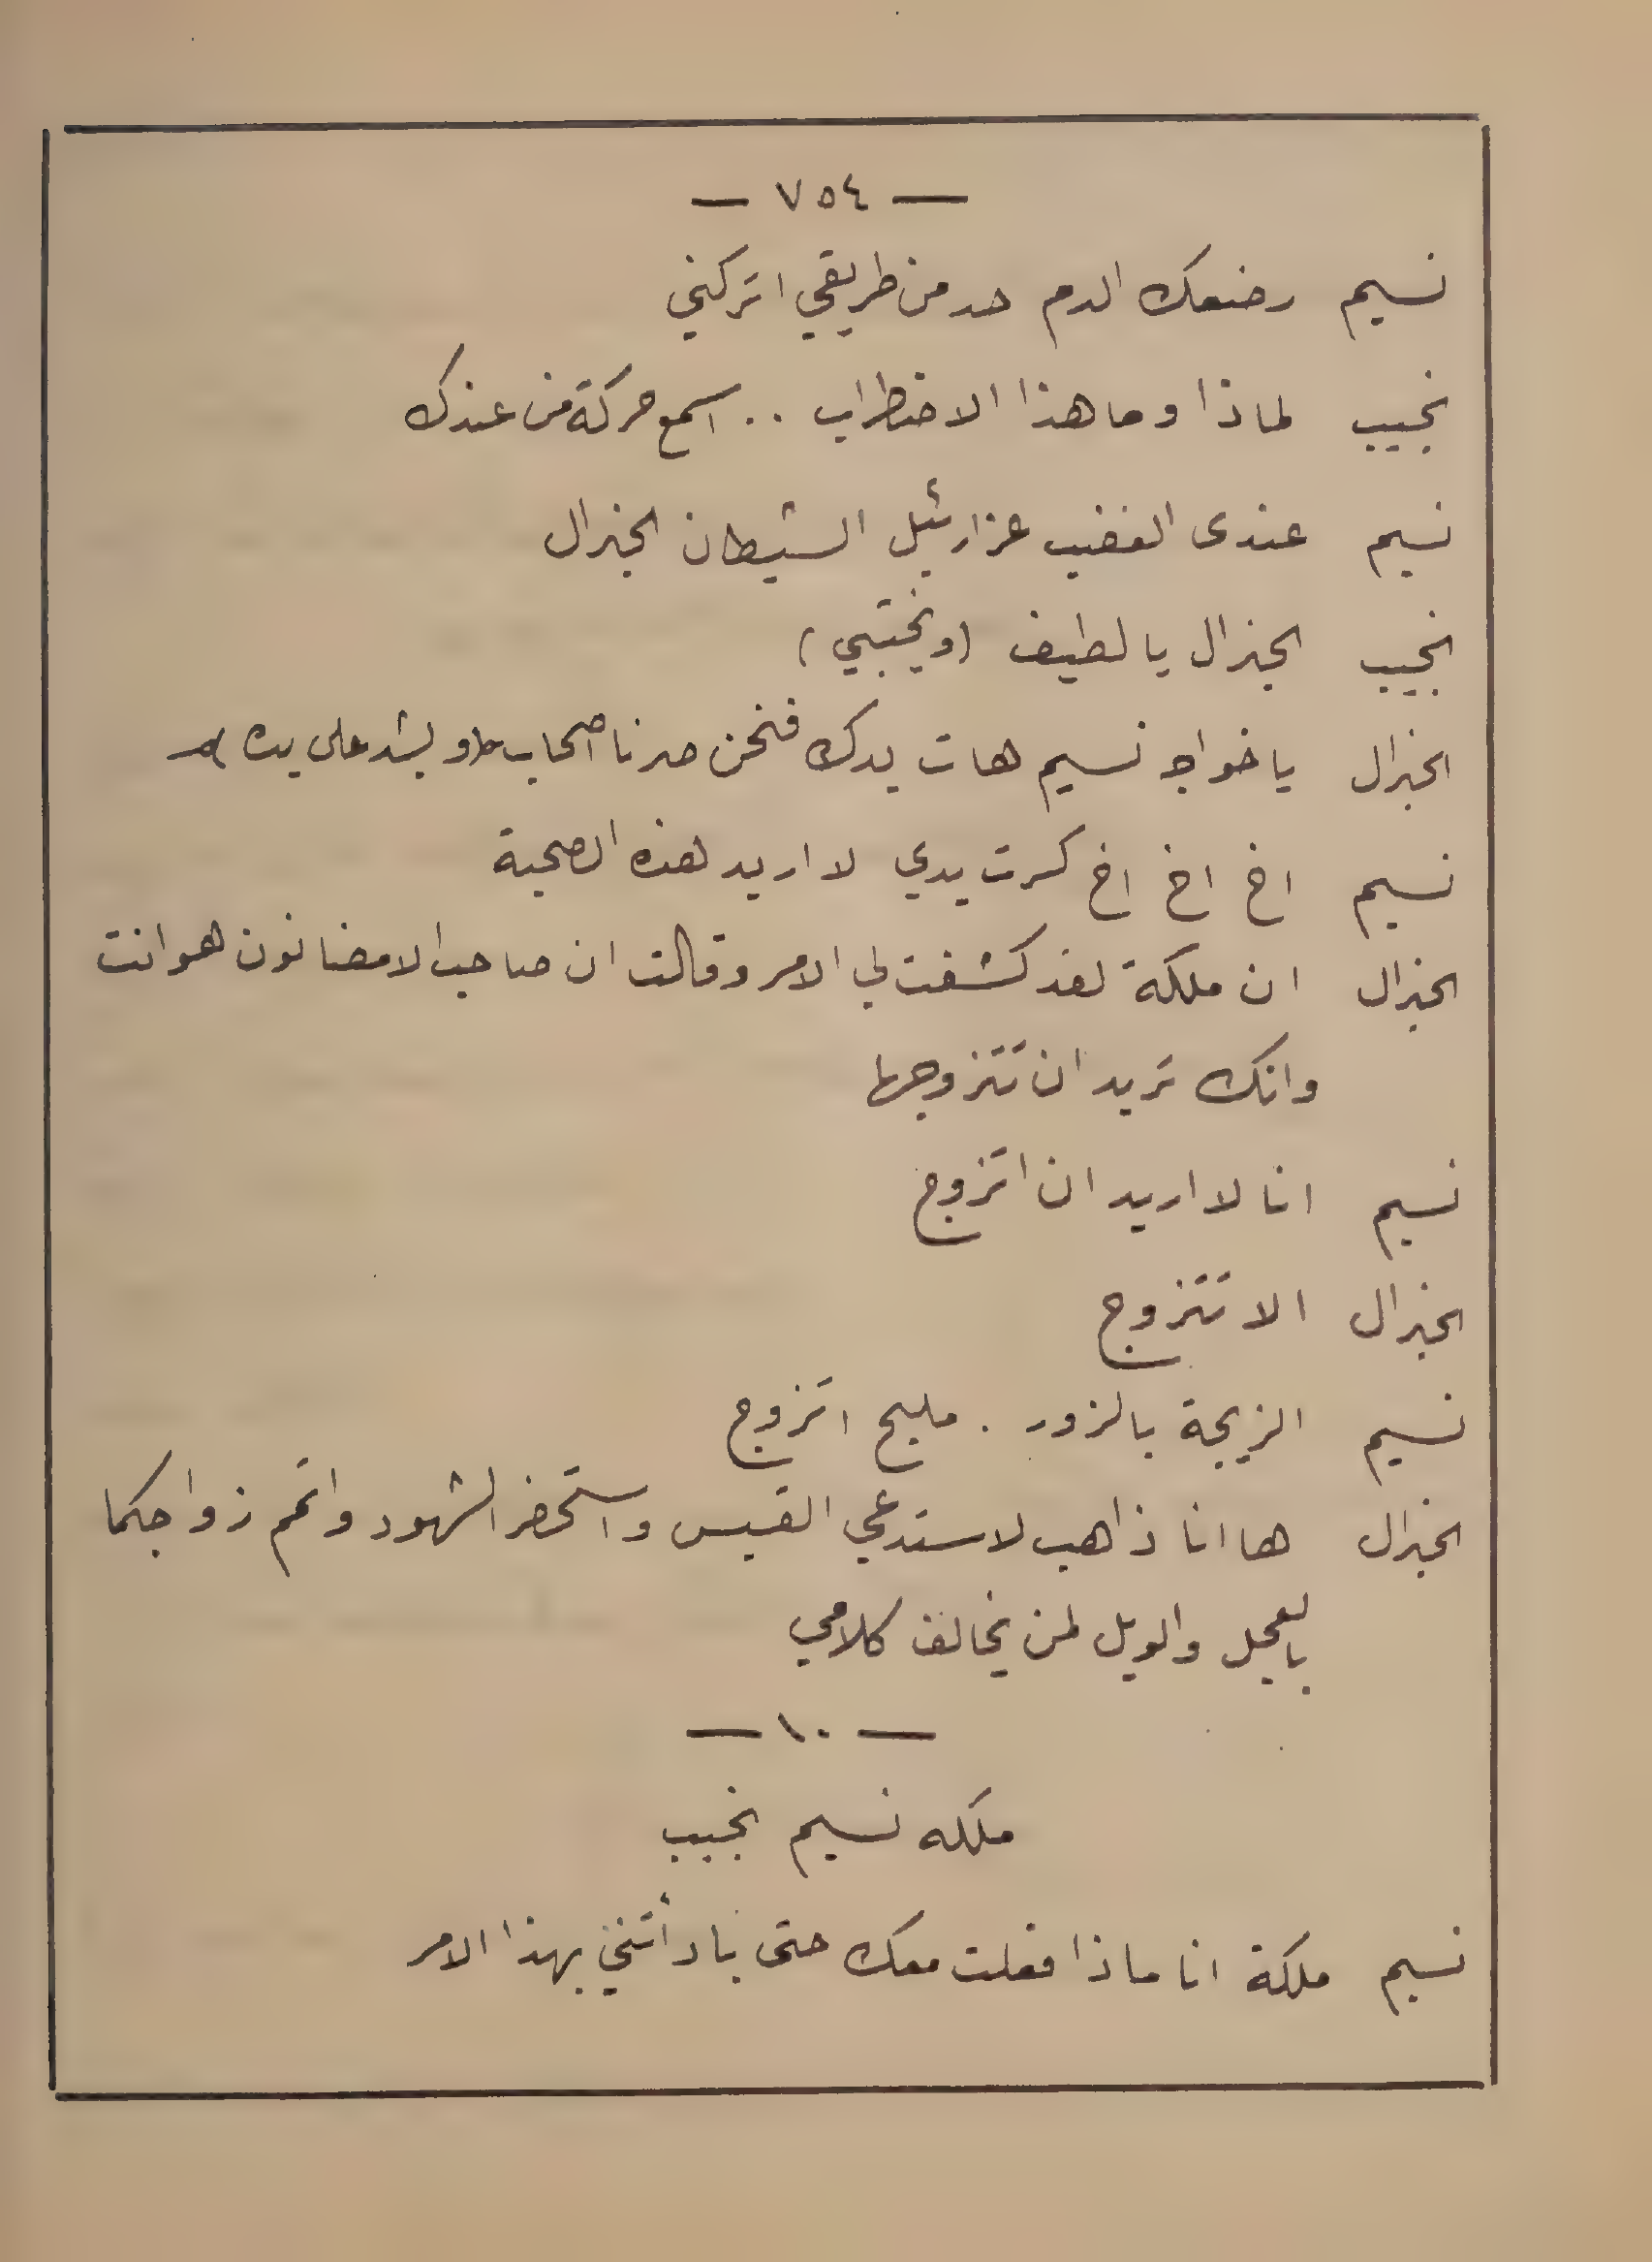 — ٧٥٤ —
نسيم رضعك الدم حد من طريقي اتركني
نجيب لماذا وما هذا الاضطراب .. اسمع حركة من عندك
نسيم عندى الغضب عزارئيل الشيطان الجنرال
نجيب الجنرال يا لطيف (ويختبي)
الجنرال يا خواجه نسيم هات يدك فنحن صرنا اصحاب (ويشد على يده)
نسيم اخ اخ اخ كسرت يدي لا اريد هذه الصحبة
الجنرال ان ملكة لقد كشفت لي الامر وقالت ان صاحب الامضا نون هو انت
وانك تريد ان تتزوجها
نسيم انا لا اريد ان اتزوج
الجنرال الا تتزوج
نسيم الزيجة بالزور . مليح اتزوج
الجنرال ها انا ذاهب لاستدعي القسيس واستحضر الشهود واتمم زواجكما
بالعجل والويل لمن يخالف كلامي
— ١٠ —
ملكه نسيم نجيب
نسيم ملكة انا ماذا فعلت معك حتى بادأتني بهذا الامر